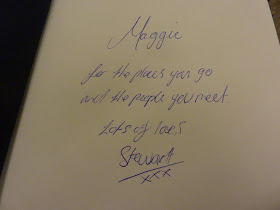 Maggie
for the places you go
and the people you meet.
Lots of love,
Stewart
xxx